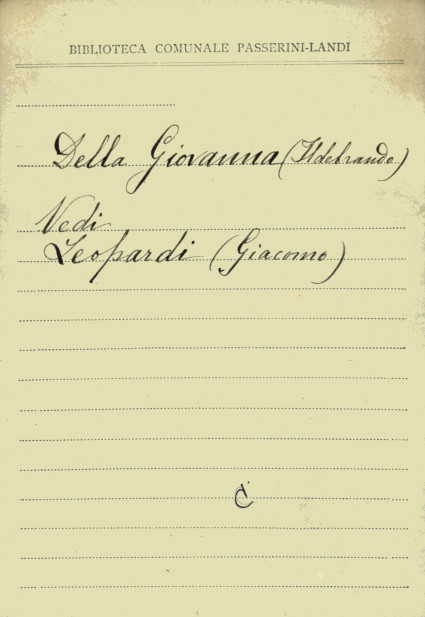 BIBLIOTECA COMUNALE PASSERINI-LANDI
Della Giovanna (Ildebrando)
Vedi
Leopardi (Giacomo)